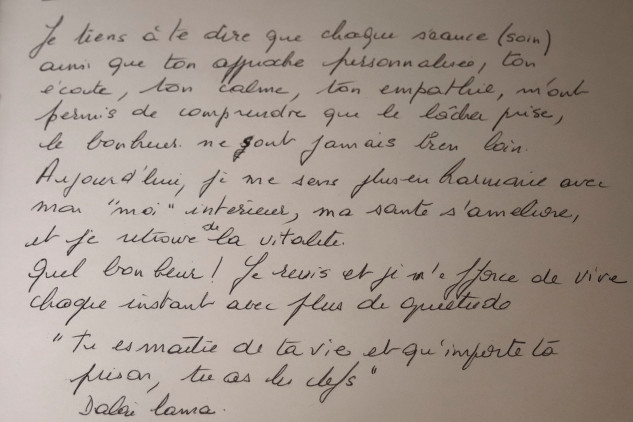 Je tiens à te dire que chaque séance (soin)
ainsi que ton approche personnalisée, ton
écoute, ton calme, ton empathie, m'ont
permis de comprendre que le lâcher prise,
le bonheur ne sont jamais bien loin.
Aujourd'hui, je me sens plus en harmonie avec
mon "moi" intérieur, ma santé s'améliore,
et je retrouve de la vitalité.
Quel bonheur ! Je revis et je m'efforce de vivre
chaque instant avec plus de quiétude
"Tu es maître de ta vie et qu'importe ta
prison, tu as les clefs"
Dalaï lama.